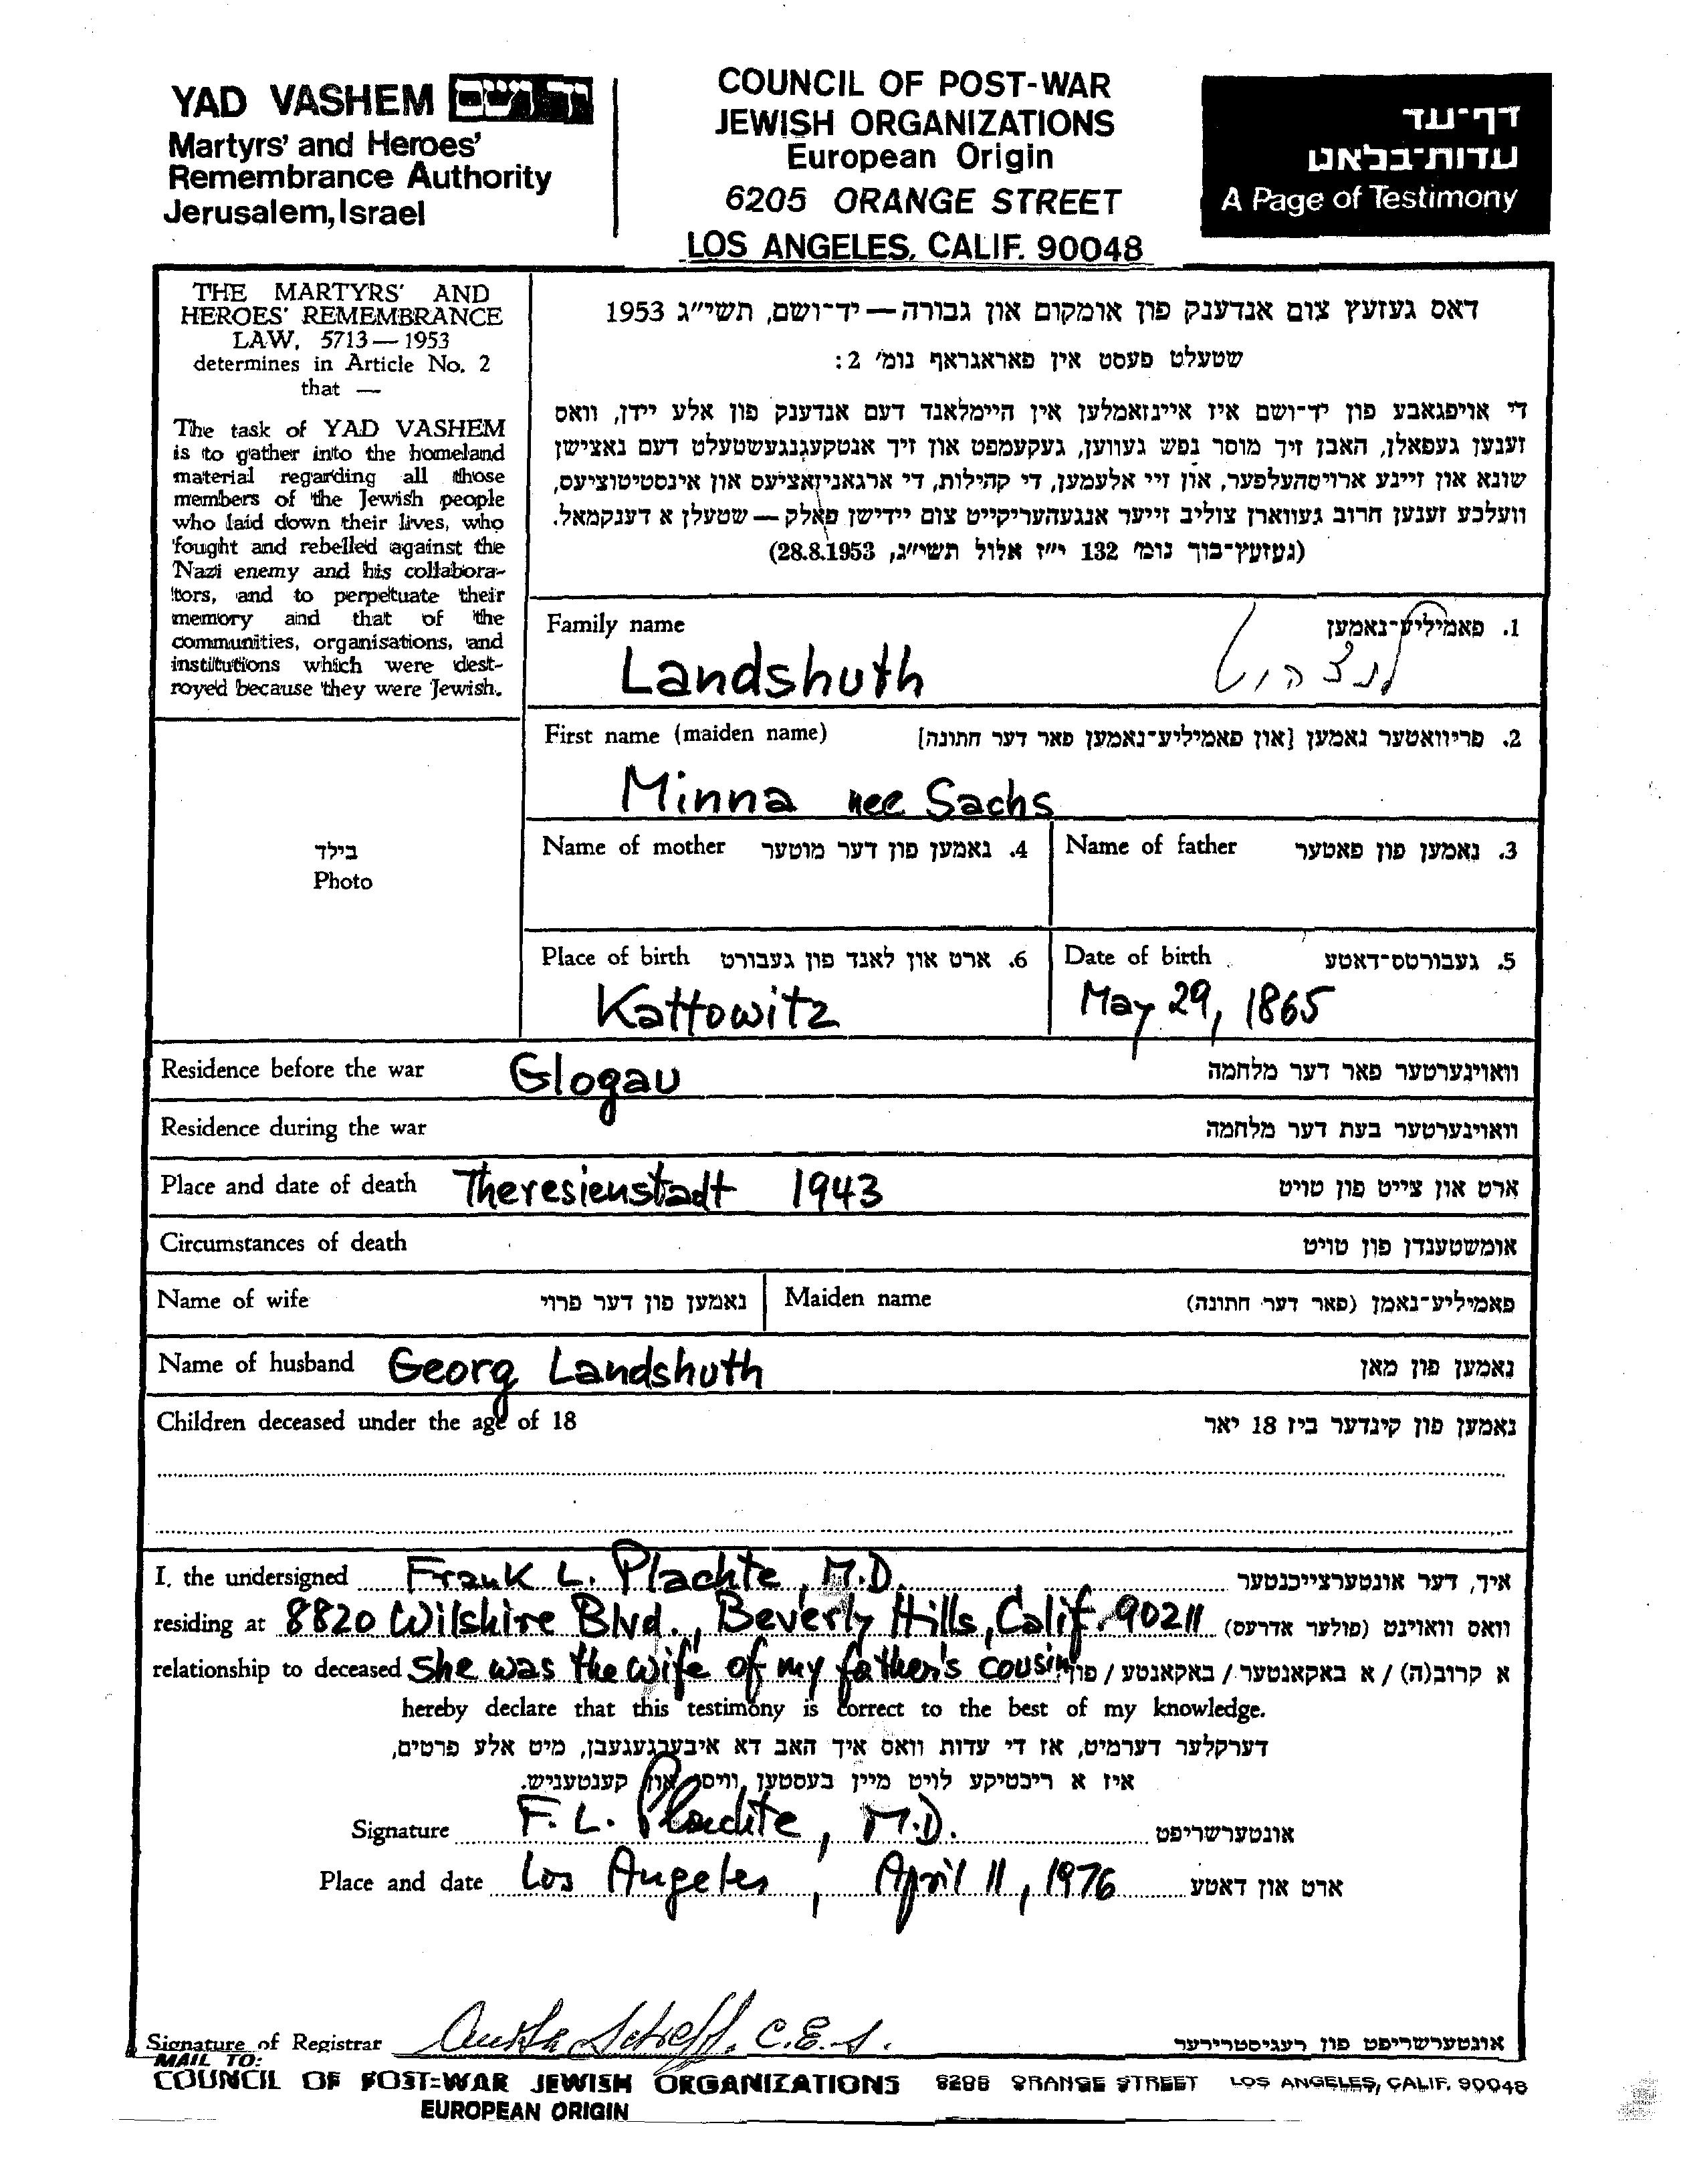 YAD VASHEM יד ושם
Martyrs' and Heroes'
Remembrance Authority
Jerusalem, Israel
COUNCIL OF POST-WAR
JEWISH ORGANIZATIONS
European Origin
6205 ORANGE STREET
LOS ANGELES, CALIF. 90048
דף־עד
עדות־בלאט
A Page of Testimony
THE MARTYRS' AND
HEROES' REMEMBRANCE
LAW, 5713—1953
determines in Article No. 2
that —
The task of YAD VASHEM
is to gather into the homeland
material regarding all those
members of the Jewish people
who laid down their lives, who
fought and rebelled against the
Nazi enemy and his collabora-
tors, and to perpetuate their
memory and that of the
communities, organisations, and
institutions which were dest-
royed because they were Jewish.
דאס געזעץ צום אנדענק פון אומקום און גבורה — יד־ושם, תשי״ג 1953
שטעלט פעסט אין פאראגראף נומ׳ 2:
די אויפגאבע פון יד־ושם איז איינזאמלען אין היימלאנד דעם אנדענק פון אלע יידן, וואס
זענען געפאלן, האבן זיך מוסר נפש געווען, געקעמפט און זיך אנטקעגנגעשטעלט דעם נאצישן
שונא און זיינע ארויסהעלפער, און זיי אלעמען, די קהילות, די ארגאניזאציעס און אינסטיטוציעס,
וועלכע זענען חרוב געווארן צוליב זייער אנגעהעריקייט צום יידישן פאלק — שטעלן א דענקמאל.
(געזעץ־בוך נומ׳ 132 י״ז אלול תשי״ג, 28.8.1953)
Family name 1. פאמיליע־נאמען
Landshuth
First name (maiden name) 2. פריוואטער נאמען [און פאמיליע־נאמען פאר דער חתונה]
Minna nee Sachs
בילד
Photo
Name of mother 4. נאמען פון דער מוטער
Name of father 3. נאמען פון פאטער
Place of birth 6. ארט און לאנד פון געבורט
Kattowitz
Date of birth 5. געבורטס־דאטע
May 29, 1865
Residence before the war Glogau וואוינערטער פאר דער מלחמה
Residence during the war וואוינערטער בעת דער מלחמה
Place and date of death Theresienstadt 1943 ארט און צייט פון טויט
Circumstances of death אומשטענדן פון טויט
Name of wife נאמען פון דער פרוי Maiden name פאמיליע־נאמן (פאר דער חתונה)
Name of husband Georg Landshuth נאמען פון מאן
Children deceased under the age of 18 נאמען פון קינדער ביז 18 יאר
I, the undersigned Frank L. Plachte, M.D. איך, דער אונטערצייכנטער
residing at 8820 Wilshire Blvd., Beverly Hills, Calif. 90211 וואס וואוינט (פולער אדרעס)
relationship to deceased She was the wife of my father's cousin א קרוב(ה) / א באקאנטער / באקאנטע / פון
hereby declare that this testimony is correct to the best of my knowledge.
דערקלער דערמיט, אז די עדות וואס איך האב דא איבערגעגעבן, מיט אלע פרטים,
איז א ריכטיקע לויט מיין בעסטען וויסן און קענטעניש.
Signature F. L. Plachte, M.D. אונטערשריפט
Place and date Los Angeles, April 11, 1976 ארט און דאטע
Signature of Registrar C.E.S. אונטערשריפט פון רעגיסטרירער
MAIL TO:
COUNCIL OF POST-WAR JEWISH ORGANIZATIONS ORANGE STREET LOS ANGELES, CALIF. 90048
EUROPEAN ORIGIN